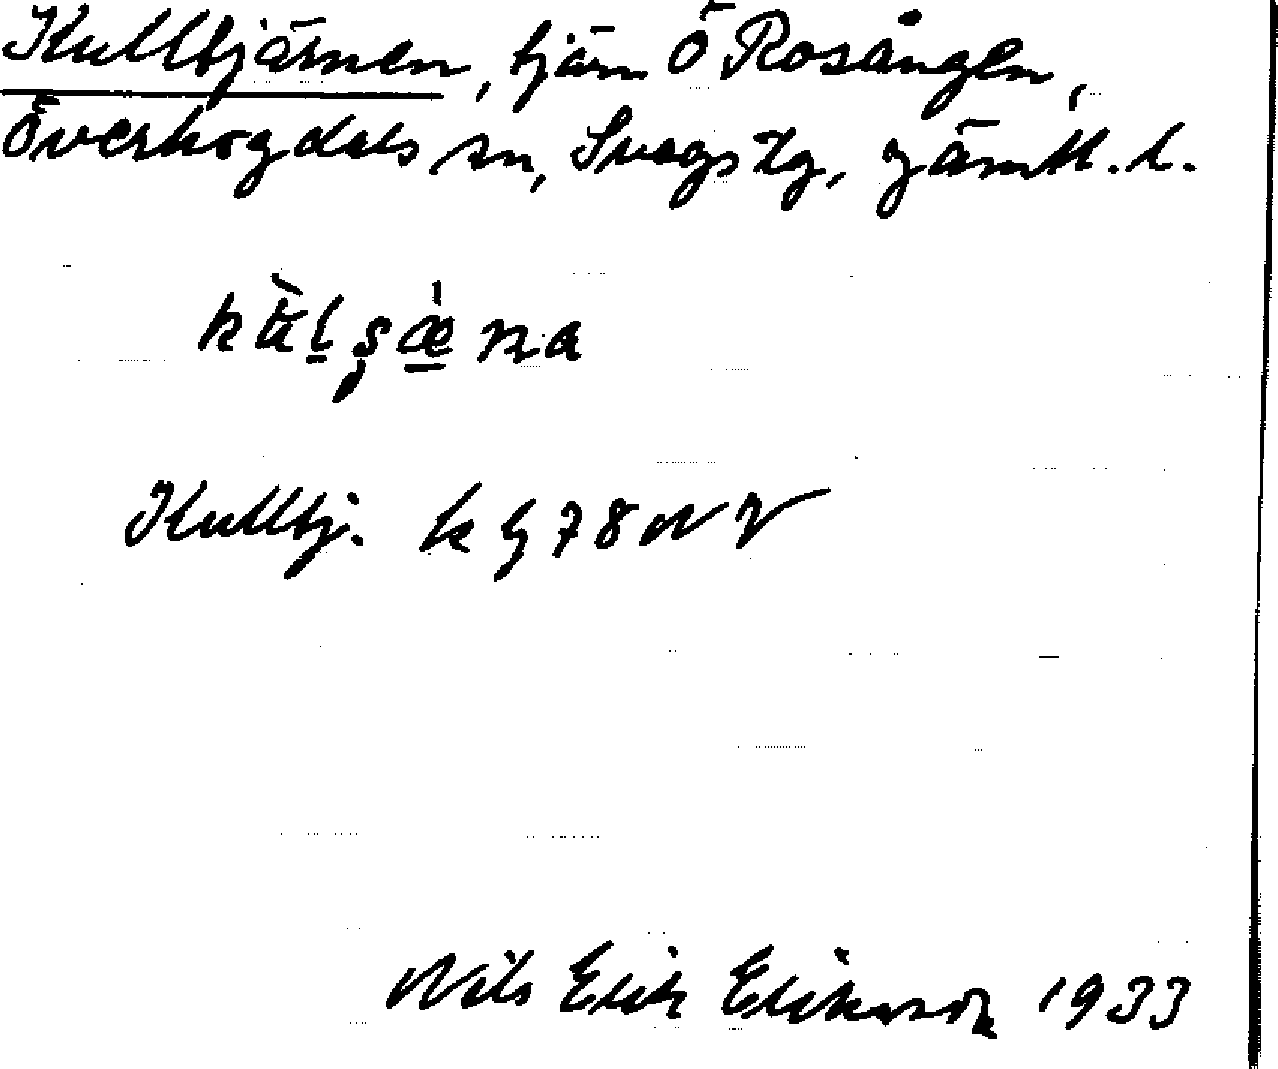 Kulltjärnen, tjärn Ö Rosången,
Överhogdals sn, Svegs tg, Jämtl. l.
Kulltj. k bj 78 NV
Nils Erik Eriksson 1933